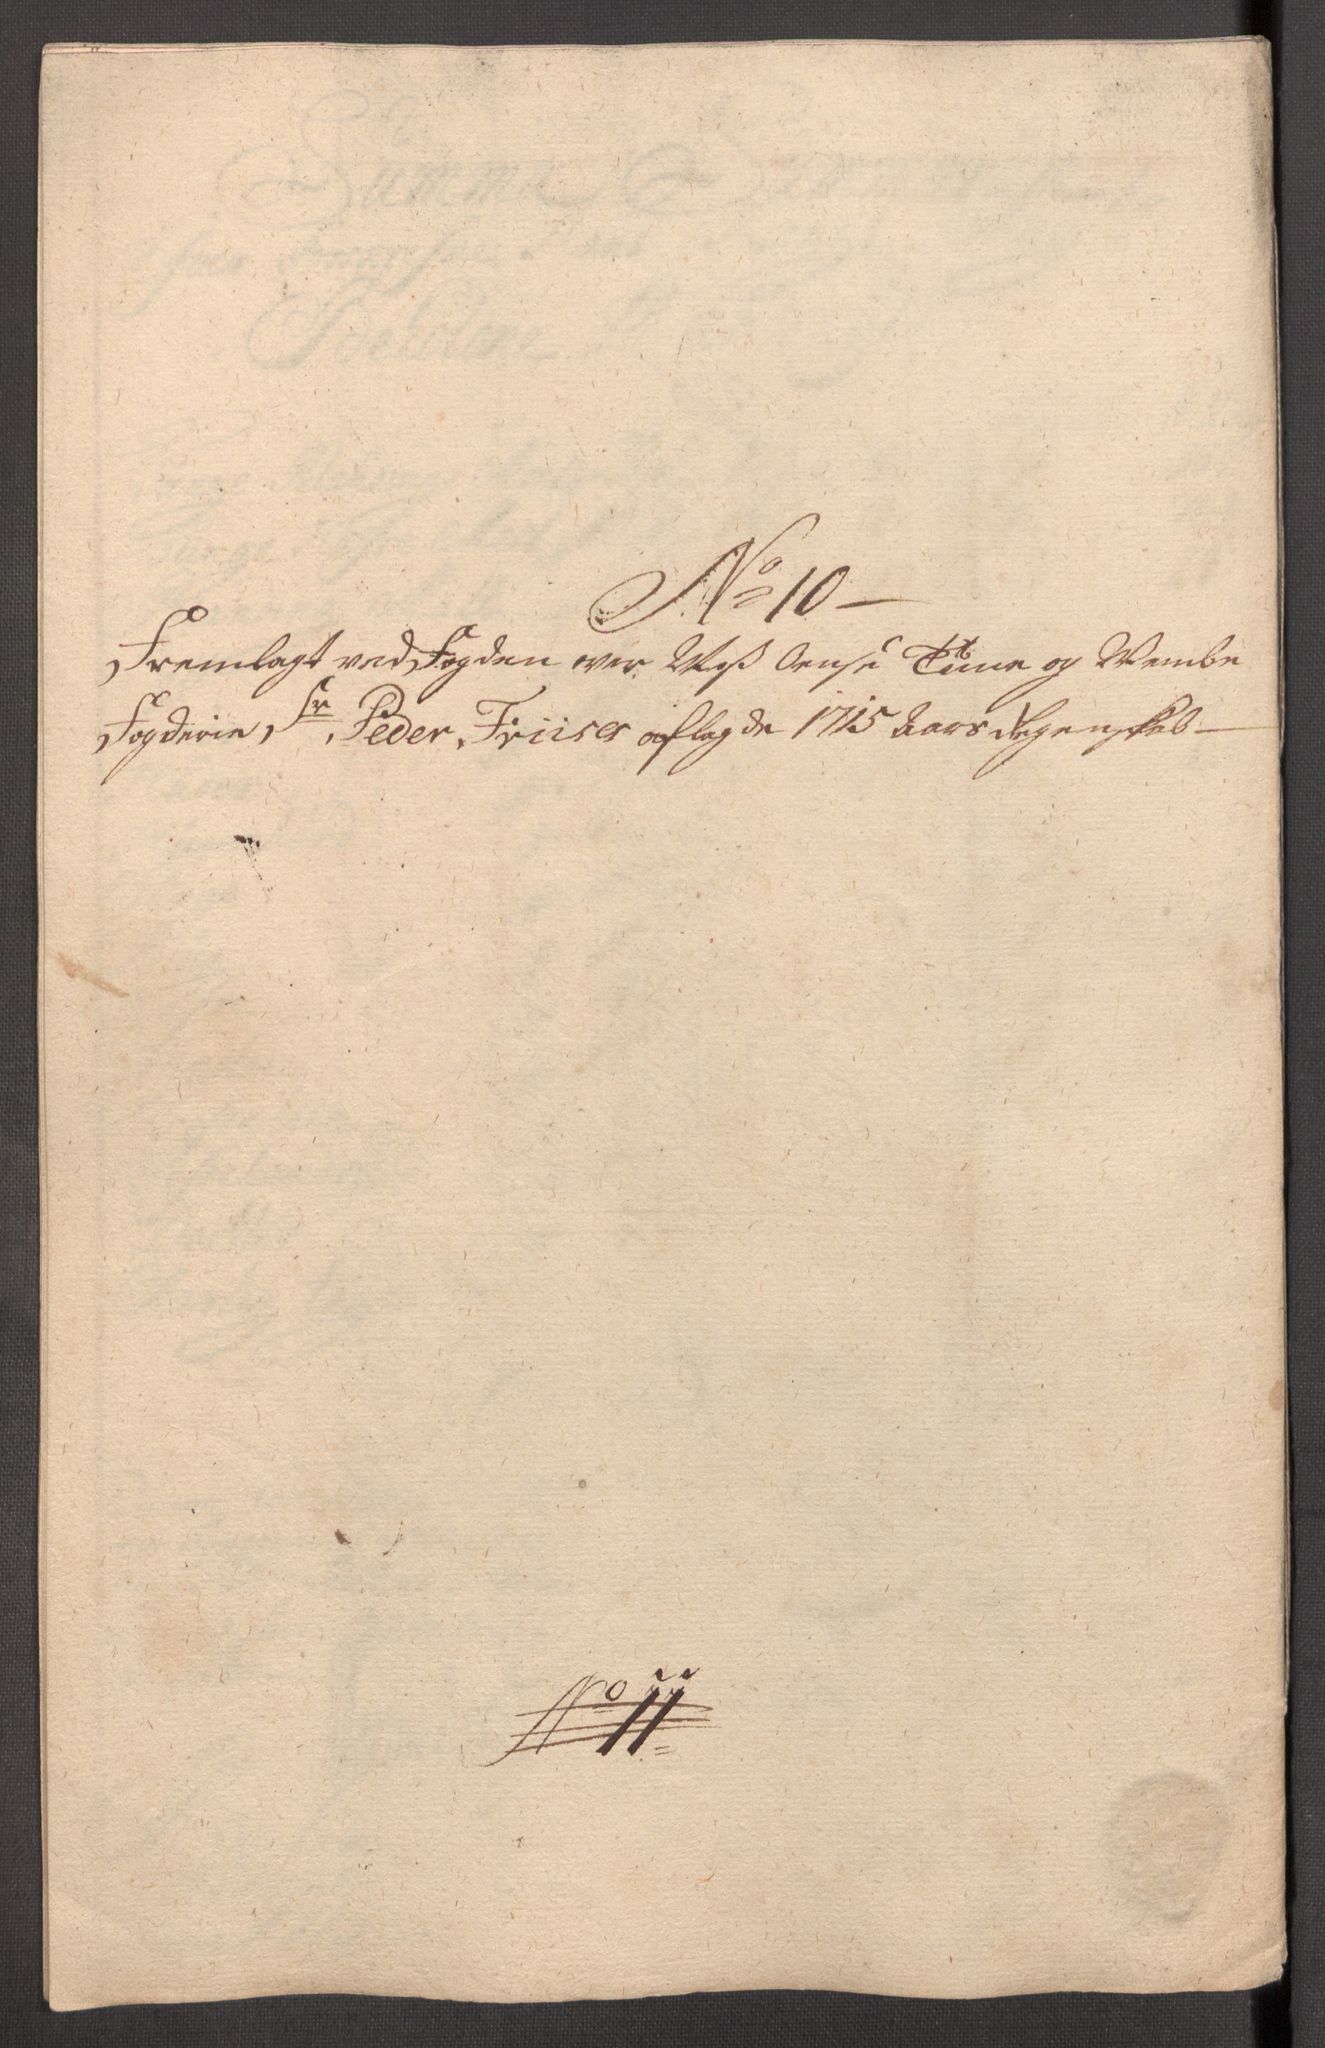 No 10
Fremlagt ved Fogden over Moss Aensl: Tune og Wembe
Fogderie Sr. Peder Friises aflagde 1715 Aars Regenskab
No 11